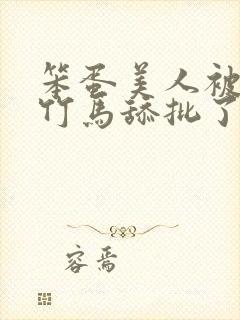 笨蛋美人被
竹马舔批了
容焉